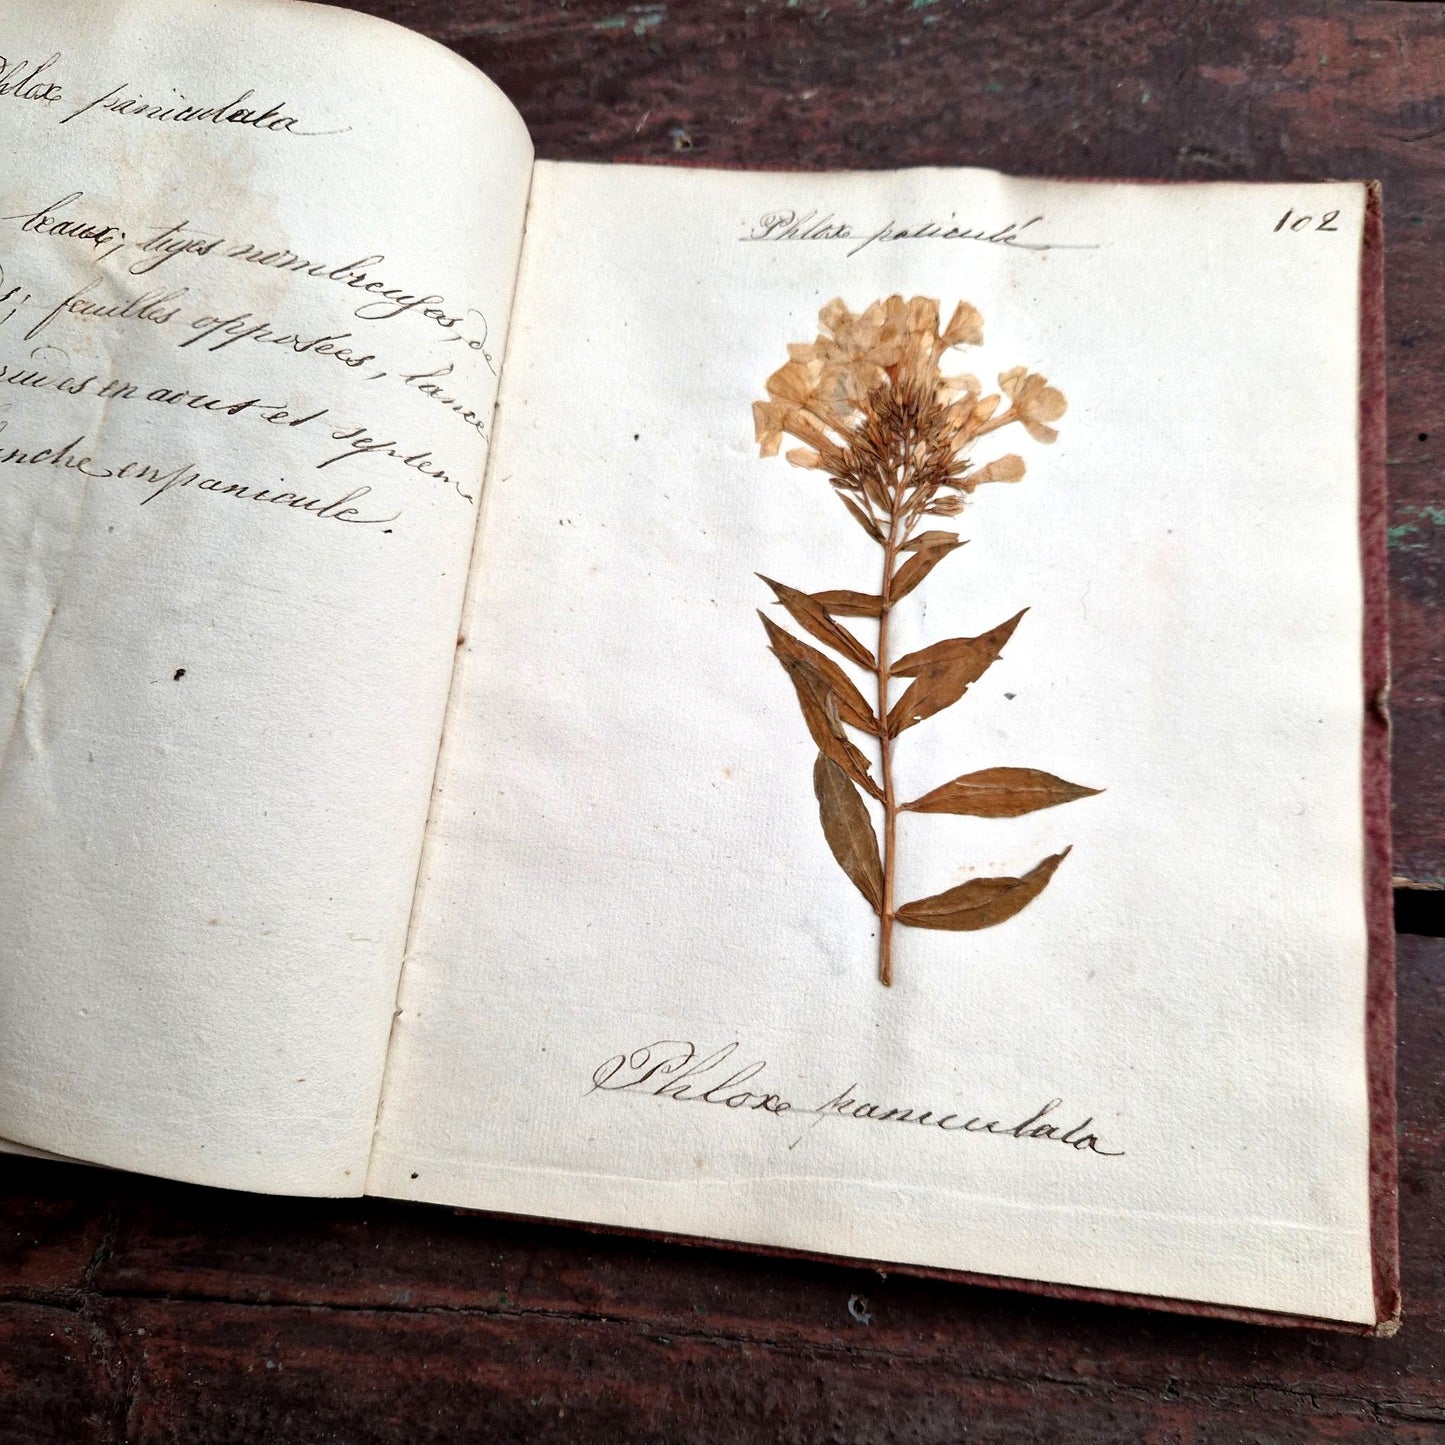 Phloxe paniculata
beaux; tiges nombreuses, de
feuilles opposées, lance
en aout et septem
enpanicule.
Phloxe paliculé
102
Phloxe paniculata